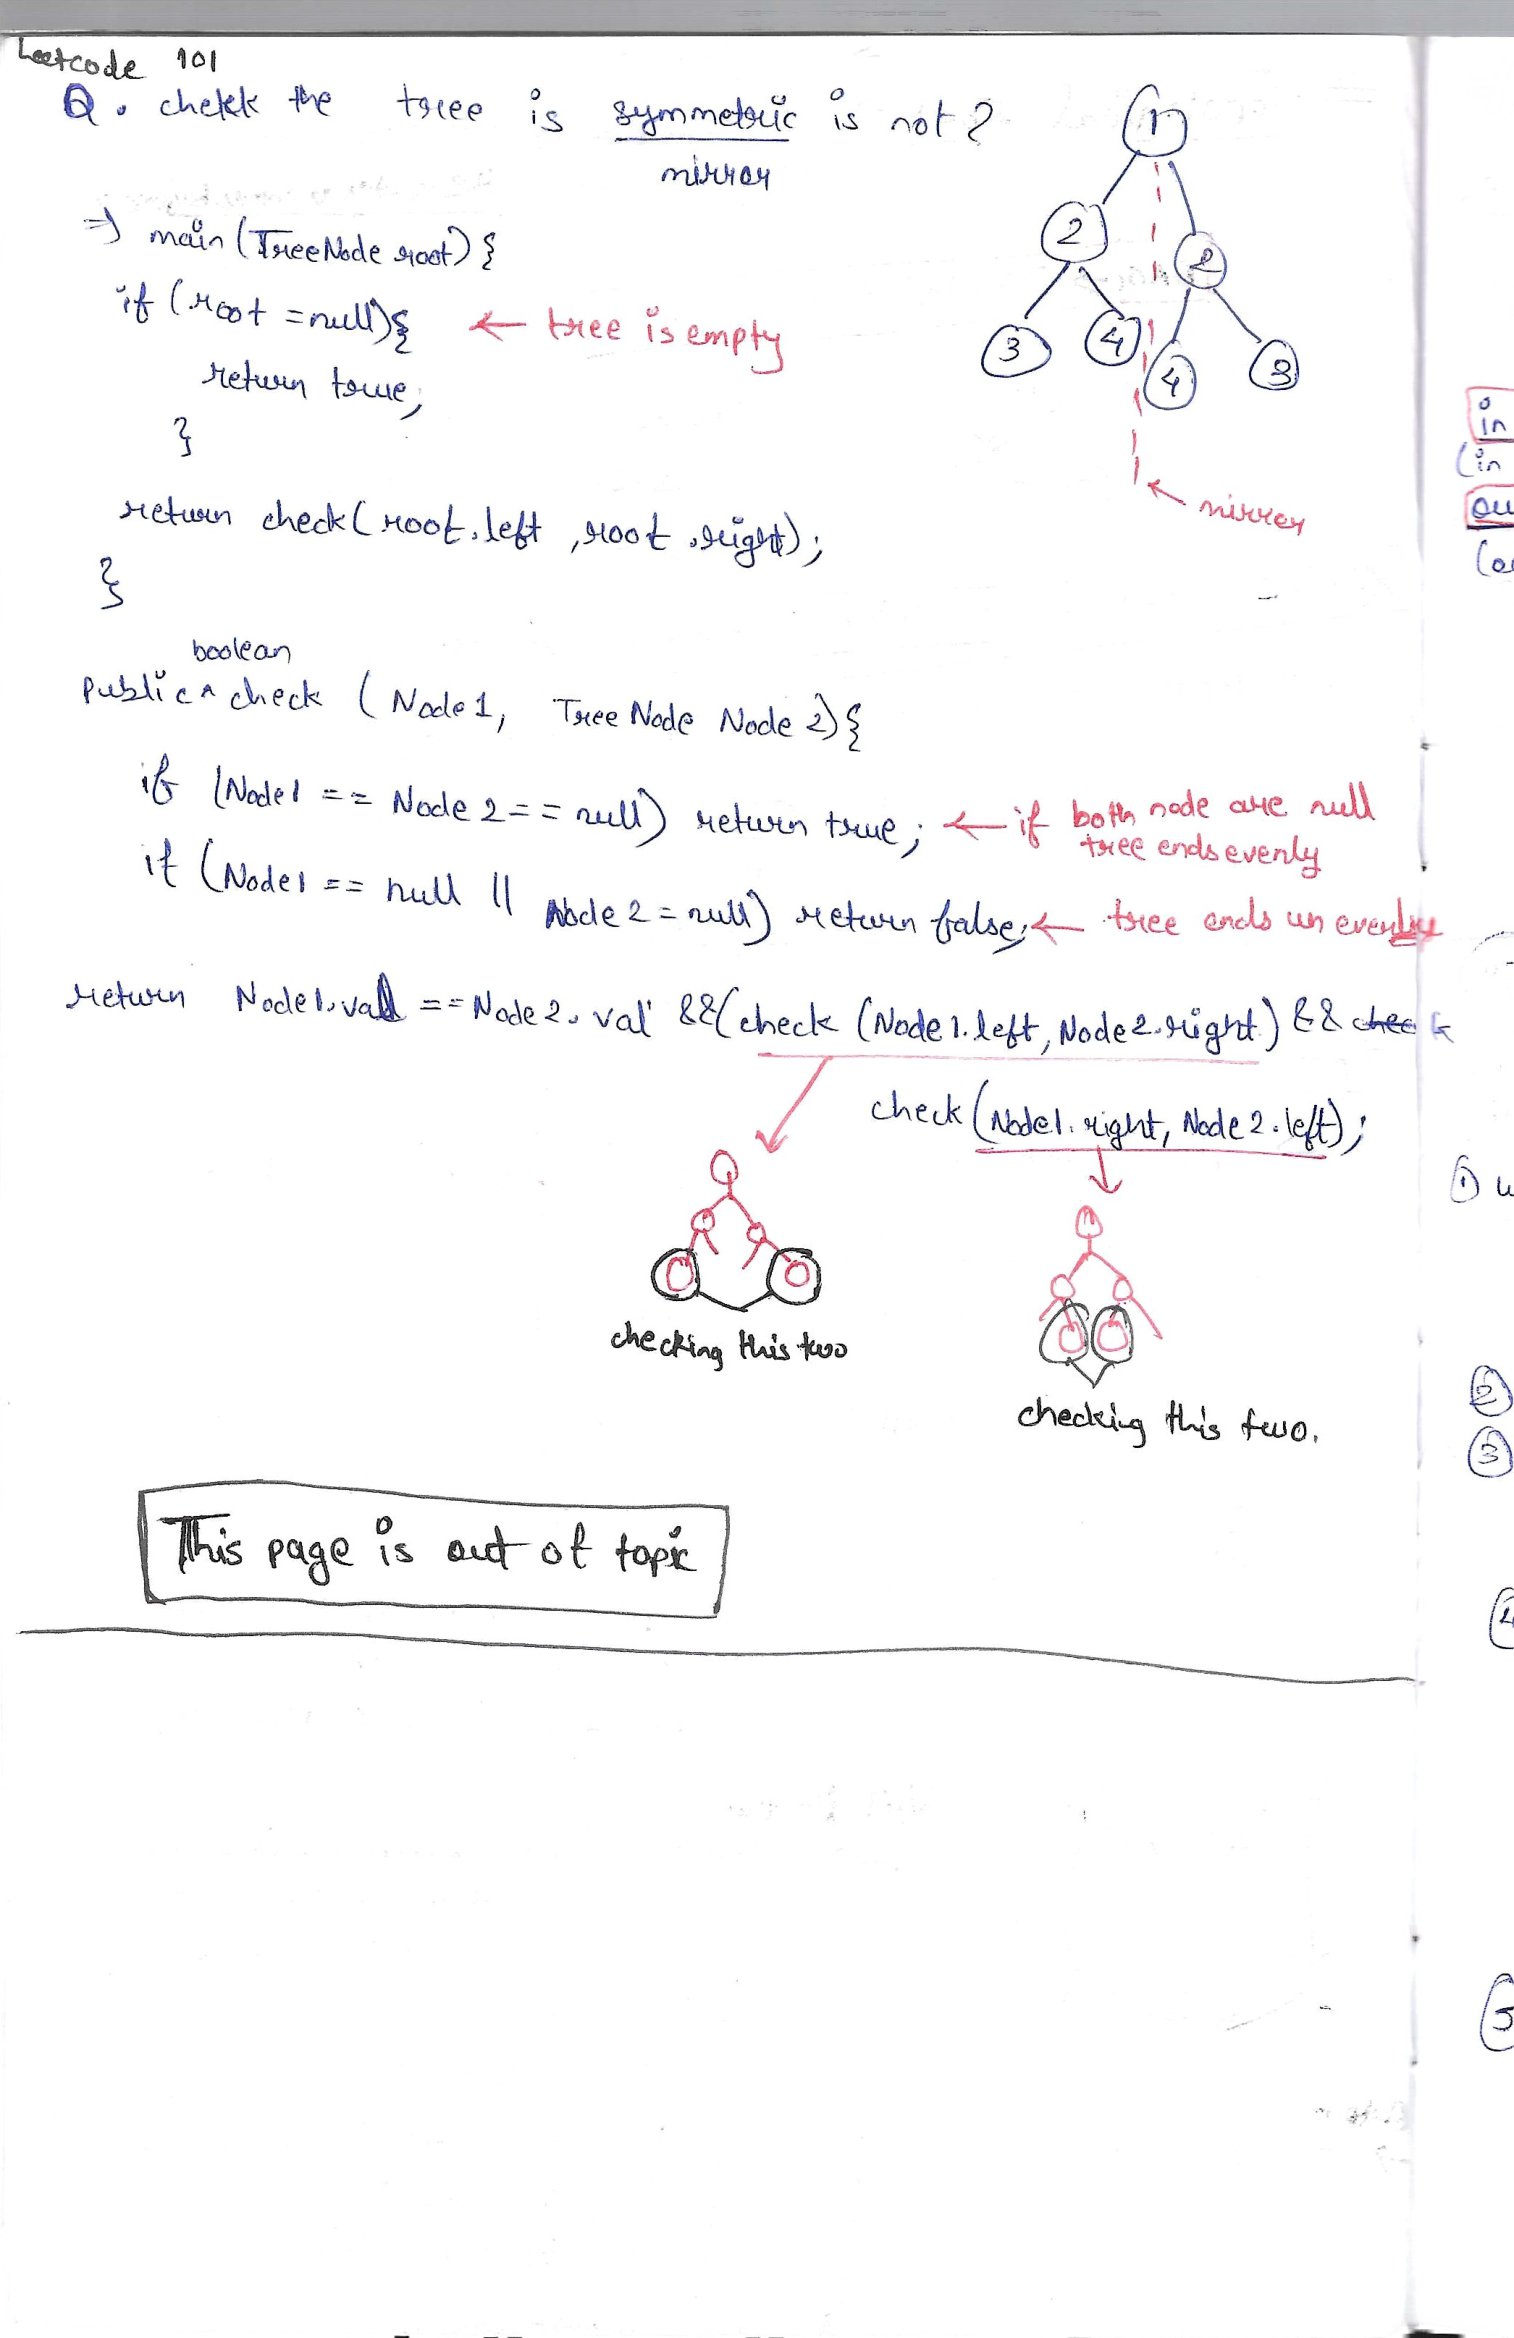 Leetcode 101
Q. chekk the tree is symmetric is not?
mirror
1
2
2
3
4
4
3
← mirror
⇒ main (TreeNode root) {
if (root = null) { ← tree is empty
return true;
}
return check (root.left , root.right);
}
boolean
Public ^ check ( Node 1, TreeNode Node 2) {
if (Node1 == Node 2 == null) return true; ← if both node are null
tree ends evenly
if (Node1 == null || Node 2 = null) return false; ← tree ends un evenly
return Node1.val == Node 2. val && (check (Node 1. left, Node 2.right) && check
check (Node1. right, Node 2. left);
checking this two
checking this two.
This page is out of topic
in
(in
ou
①
②
③